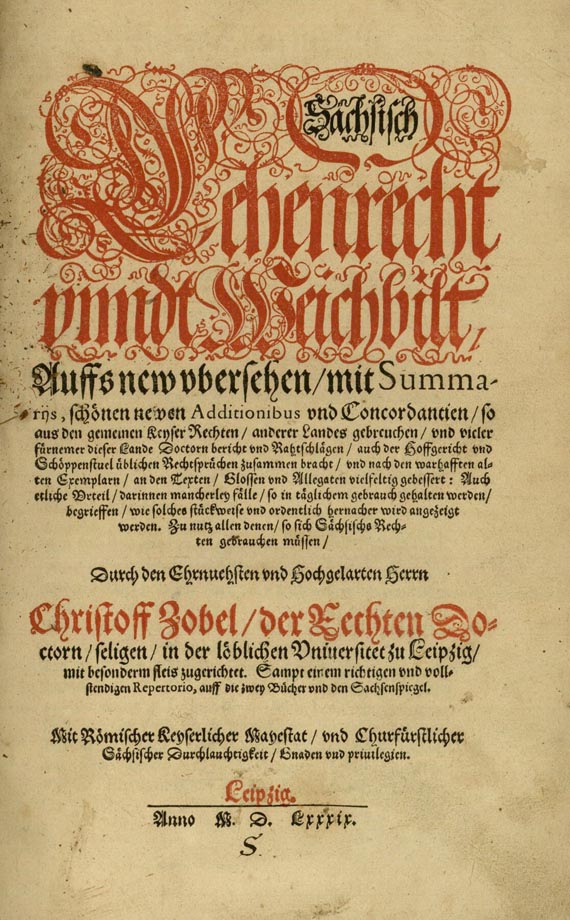 Sächsisch
Lehenrecht
vnndt Weichbilt/
Auffs new vbersehen/mit Summa-
rijs, schönen newen Additionibus vnd Concordantien/so
aus den gemeinen Keyser Rechten/anderer Landes gebreuchen/vnd vieler
fürnemer dieser Lande Doctorn bericht vnd Rahtschlägen/auch der Hoffgericht vnd
Schöppenstuel üblichen Rechtsprüchen zusammen bracht/vnd nach den warhafften al-
ten Exemplarn/an den Texten/Glossen vnd Allegaten vielfeltig gebessert: Auch
etliche Vrteil/darinnen mancherley fälle/so in täglichem gebrauch gehalten werden/
begrieffen/wie solches stückweise vnd ordentlich hernacher wird angezeigt
werden. Zu nutz allen denen/so sich Sächsischs Rech-
ten gebrauchen müssen/
Durch den Ehrnuehsten vnd Hochgelarten Herrn
Christoff Zobel/der Rechten Do-
ctorn/seligen/in der löblichen Vniuersitet zu Leipzig/
mit besonderm fleis zugerichtet. Sampt einem richtigen vnd voll-
stendigen Repertorio, auff die zwey Bücher vnd den Sachsenspiegel.
Mit Römischer Keyserlicher Mayestat/vnd Churfürstlicher
Sächsischer Durchlauchtigkeit/Gnaden vnd priuilegien.
Leipzig.
Anno M. D. Lxxxix.
S.